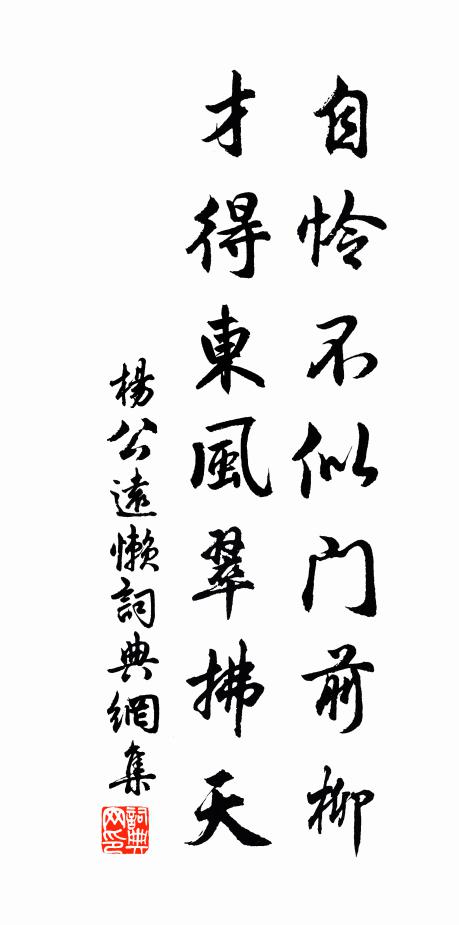 自怜不似门前柳
才得東風翠拂天
楊公遠懶詞典網集
詞典网印